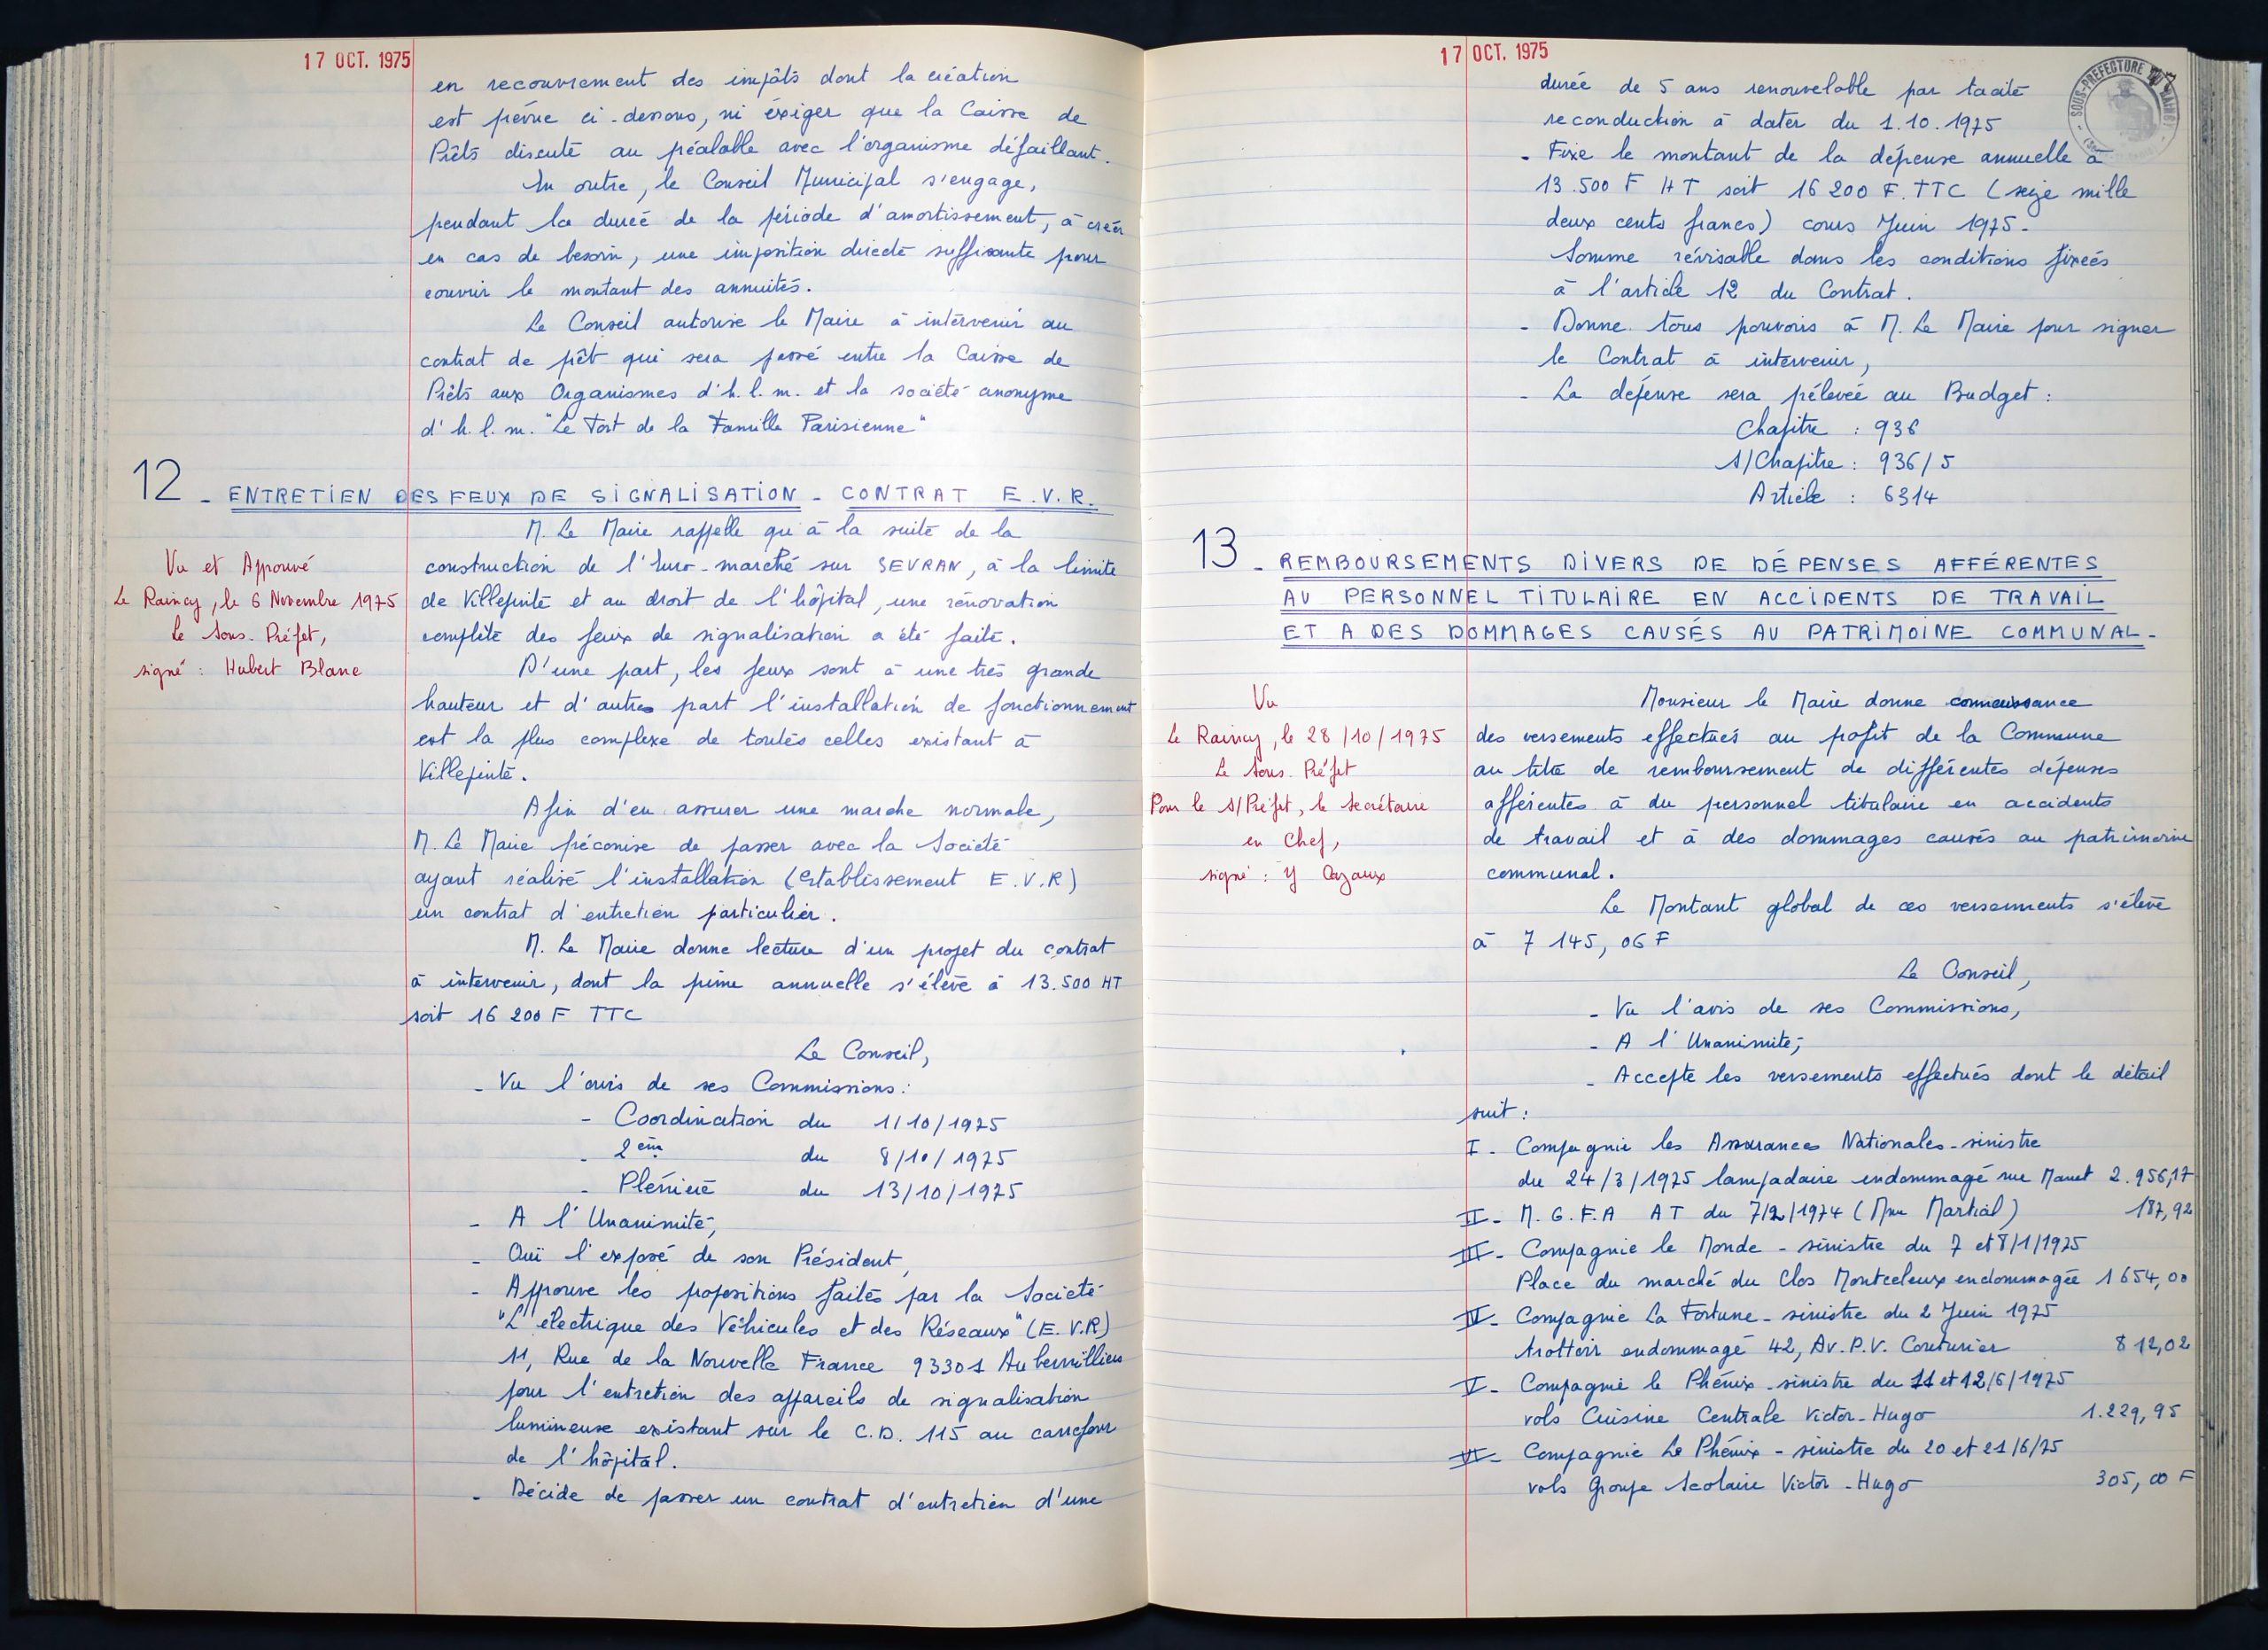 17 OCT. 1975
en recouvrement des impôts dont la création
est prévue ci-dessous, ni éxiger que la Caisse de
Prêts discute au préalable avec l'organisme défaillant.
En outre, le Conseil Municipal s'engage,
pendant la durée de la période d'amortissement, à créer
en cas de besoin, une imposition directe suffisante pour
couvrir le montant des annuités.
Le Conseil autorise le Maire à intervenir au
contrat de prêt qui sera passé entre la Caisse de
Prêts aux Organismes d'h.l.m. et la société anonyme
d'h.l.m. "Le Toit de la Famille Parisienne"
12 - ENTRETIEN DES FEUX DE SIGNALISATION - CONTRAT E.V.R.
M. Le Maire rappelle qu'à la suite de la
construction de l'Euro-marché sur SEVRAN, à la limite
de Villepinte et au droit de l'hôpital, une rénovation
complète des feux de signalisation a été faite.
D'une part, les feux sont à une très grande
hauteur et d'autre part l'installation de fonctionnement
est la plus complexe de toutes celles existant à
Villepinte.
Afin d'en assurer une marche normale,
M. Le Maire préconise de passer avec la Société
ayant réalisé l'installation (établissement E.V.R)
un contrat d'entretien particulier.
M. Le Maire donne lecture d'un projet du contrat
à intervenir, dont la prime annuelle s'élève à 13.500 HT
soit 16 200 F TTC
Le Conseil,
- Vu l'avis de ses Commissions :
- Coordination du 1/10/1975
- 2èm du 8/10/1975
- Plénière du 13/10/1975
- A l'Unanimité,
- Ouï l'exposé de son Président,
- Approuve les propositions faites par la Société
"L'électrique des Véhicules et des Réseaux" (E.V.R)
11, Rue de la Nouvelle France 93301 Aubervilliers
pour l'entretien des appareils de signalisation
lumineuse existant sur le C.D. 115 au carrefour
de l'hôpital.
- Décide de passer un contrat d'entretien d'une
Vu et Approuvé
Le Raincy, le 6 Novembre 1975
Le Sous-Préfet,
signé : Hubert Blanc
17 OCT. 1975
SOUS-PREFECTURE DU RAINCY
durée de 5 ans renouvelable par tacite
reconduction à dater du 1.10.1975
- Fixe le montant de la dépense annuelle à
13.500 F HT soit 16 200 F. TTC (seize mille
deux cents francs) cours Juin 1975.
Somme révisable dans les conditions fixées
à l'article 12 du Contrat.
- Donne tous pouvoirs à M. Le Maire pour signer
le Contrat à intervenir,
- La dépense sera prélevée au Budget :
Chapitre : 936
S/Chapitre : 936/5
Article : 6314
13 - REMBOURSEMENTS DIVERS DE DÉPENSES AFFÉRENTES
AU PERSONNEL TITULAIRE EN ACCIDENTS DE TRAVAIL
ET A DES DOMMAGES CAUSÉS AU PATRIMOINE COMMUNAL -
Monsieur le Maire donne connaissance
des versements effectués au profit de la Commune
au titre de remboursement de différentes dépenses
afférentes à du personnel titulaire en accidents
de travail et à des dommages causés au patrimoine
communal.
Le Montant global de ces versements s'élève
à 7 145,06 F
Le Conseil,
- Vu l'avis de ses Commissions,
- A l'Unanimité,
- Accepte les versements effectués dont le détail
suit :
I - Compagnie les Assurances Nationales - sinistre
du 24/3/1975 lampadaire endommagé rue Manet 2.956,17
II - M.G.F.A AT du 7/2/1974 (Mme Martial) 187,92
III - Compagnie le Monde - sinistre du 7 et 8/1/1975
Place du marché du Clos Montceleux endommagée 1 654,00
IV - Compagnie La Fortune - sinistre du 2 Juin 1975
trottoir endommagé 42, Av. P.V. Couturier 812,02
V - Compagnie le Phénix - sinistre du 11 et 12/6/1975
vols Cuisine Centrale Victor-Hugo 1.229,95
VI - Compagnie Le Phénix - sinistre du 20 et 21/6/75
vols Groupe Scolaire Victor-Hugo 305,00 F
Vu
Le Raincy, le 28/10/1975
Le Sous-Préfet
Pour le S/Préfet, le Secrétaire
en Chef,
signé : Y Cazaux